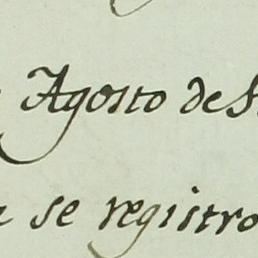 Agosto de
se registro